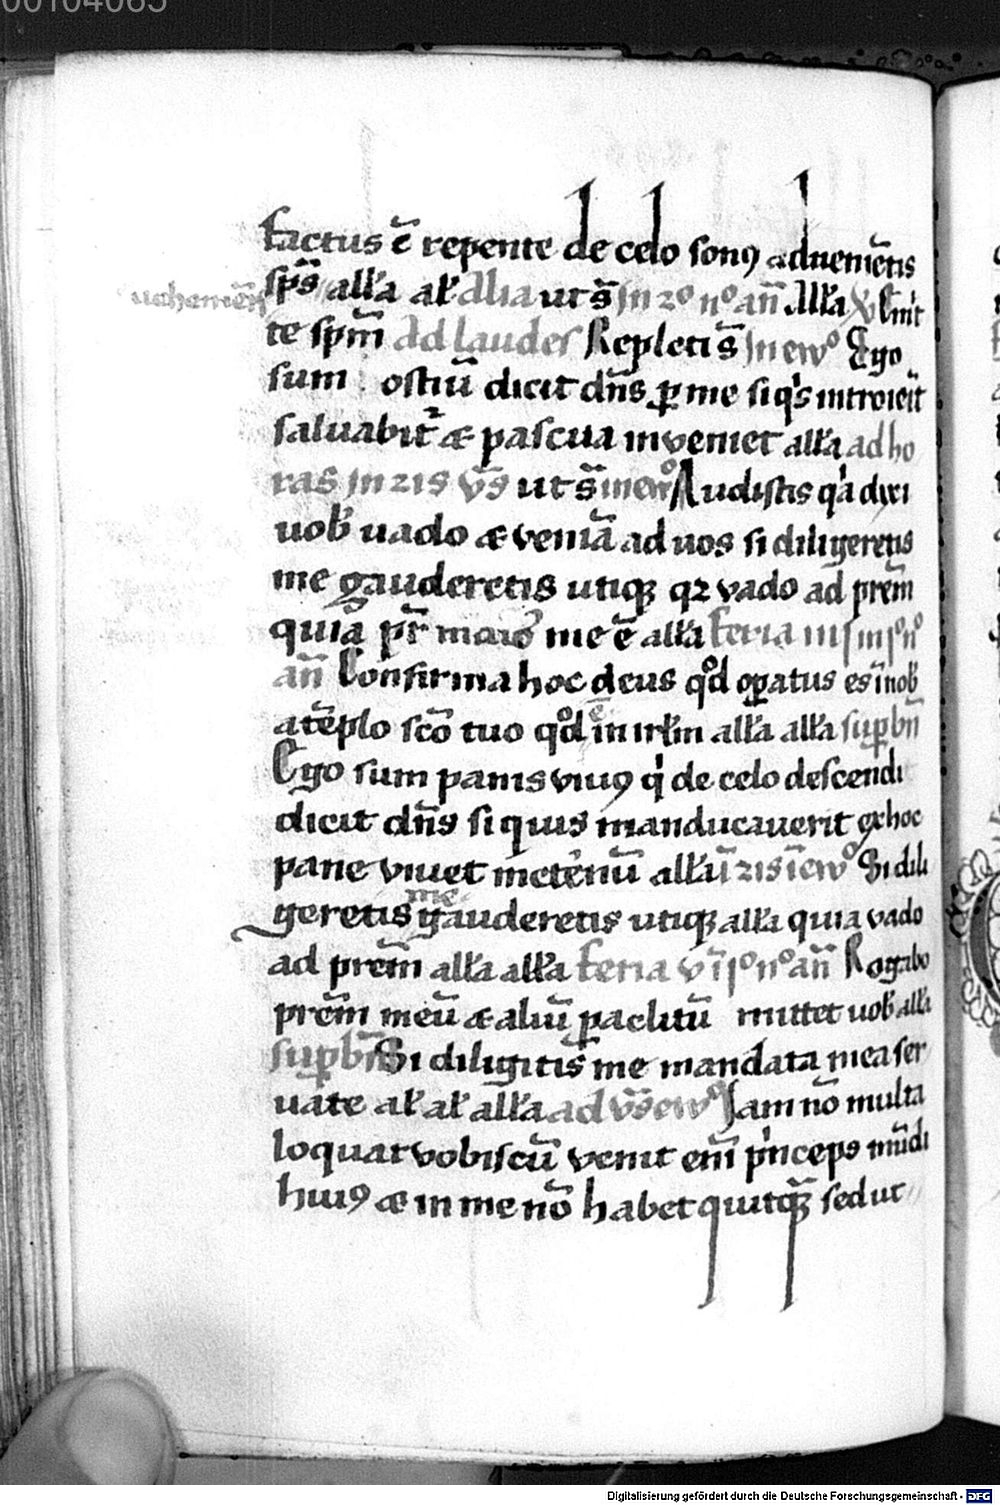 00104065
factus ē repente de celo sonꝯ adveniētis
vehemēs
sp̄s all'a al' Alia ut s̄ In 2º nº an̄ All'a V Emit
te sp̄m Ad laudes Repleti s̄ In ewº Ego
sum ostiū dicit dn̄s ꝑ me si q's introierit
saluabit᷑ & pascua inveniet all'a ad ho
ras In 2is v̄s ut s̄ in ewº Audistis q'a dixi
uob' uado & veniā ad uos si diligeretis
me gauderetis utiqꝫ q2 vado ad prēm
quia pr̄ maior me ē all'a feria iii In 1º nº
an̄ Confirma hoc deus qd̊ oꝑatus es īnob'
a tēplo scō tuo qd̊ ē in irl'm all'a all'a suꝑ bn̄
Ego sum panis viuꝯ q' de celo descendi
dicit dn̄s si quis manducaverit ex hoc
pane vivet in etē'nū all'a ī 2is ī ewº Si dili
geretis me gauderetis utiqꝫ all'a quia vado
ad prēm all'a all'a feria v ī 1º nº an̄ Rogabo
prēm meū & aliū ꝑaclitū mittet uob' all'a
suꝑ bn̄ Si diligitis me mandata mea ser
uate al' al' all'a ad v̄s ewº Iam nō multa
loquar vobiscū venit eni̅ p'nceps mūdi
huiꝯ & in me nō habet quitqᷓꝫ sed ut
Digitalisierung gefördert durch die Deutsche Forschungsgemeinschaft - DFG